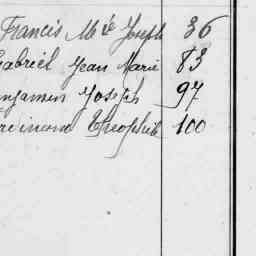 Francis Mie Joseph 36
Gabriël Jean Marie 83
Benjamin Joseph 97
Ferdinand Théophile 100